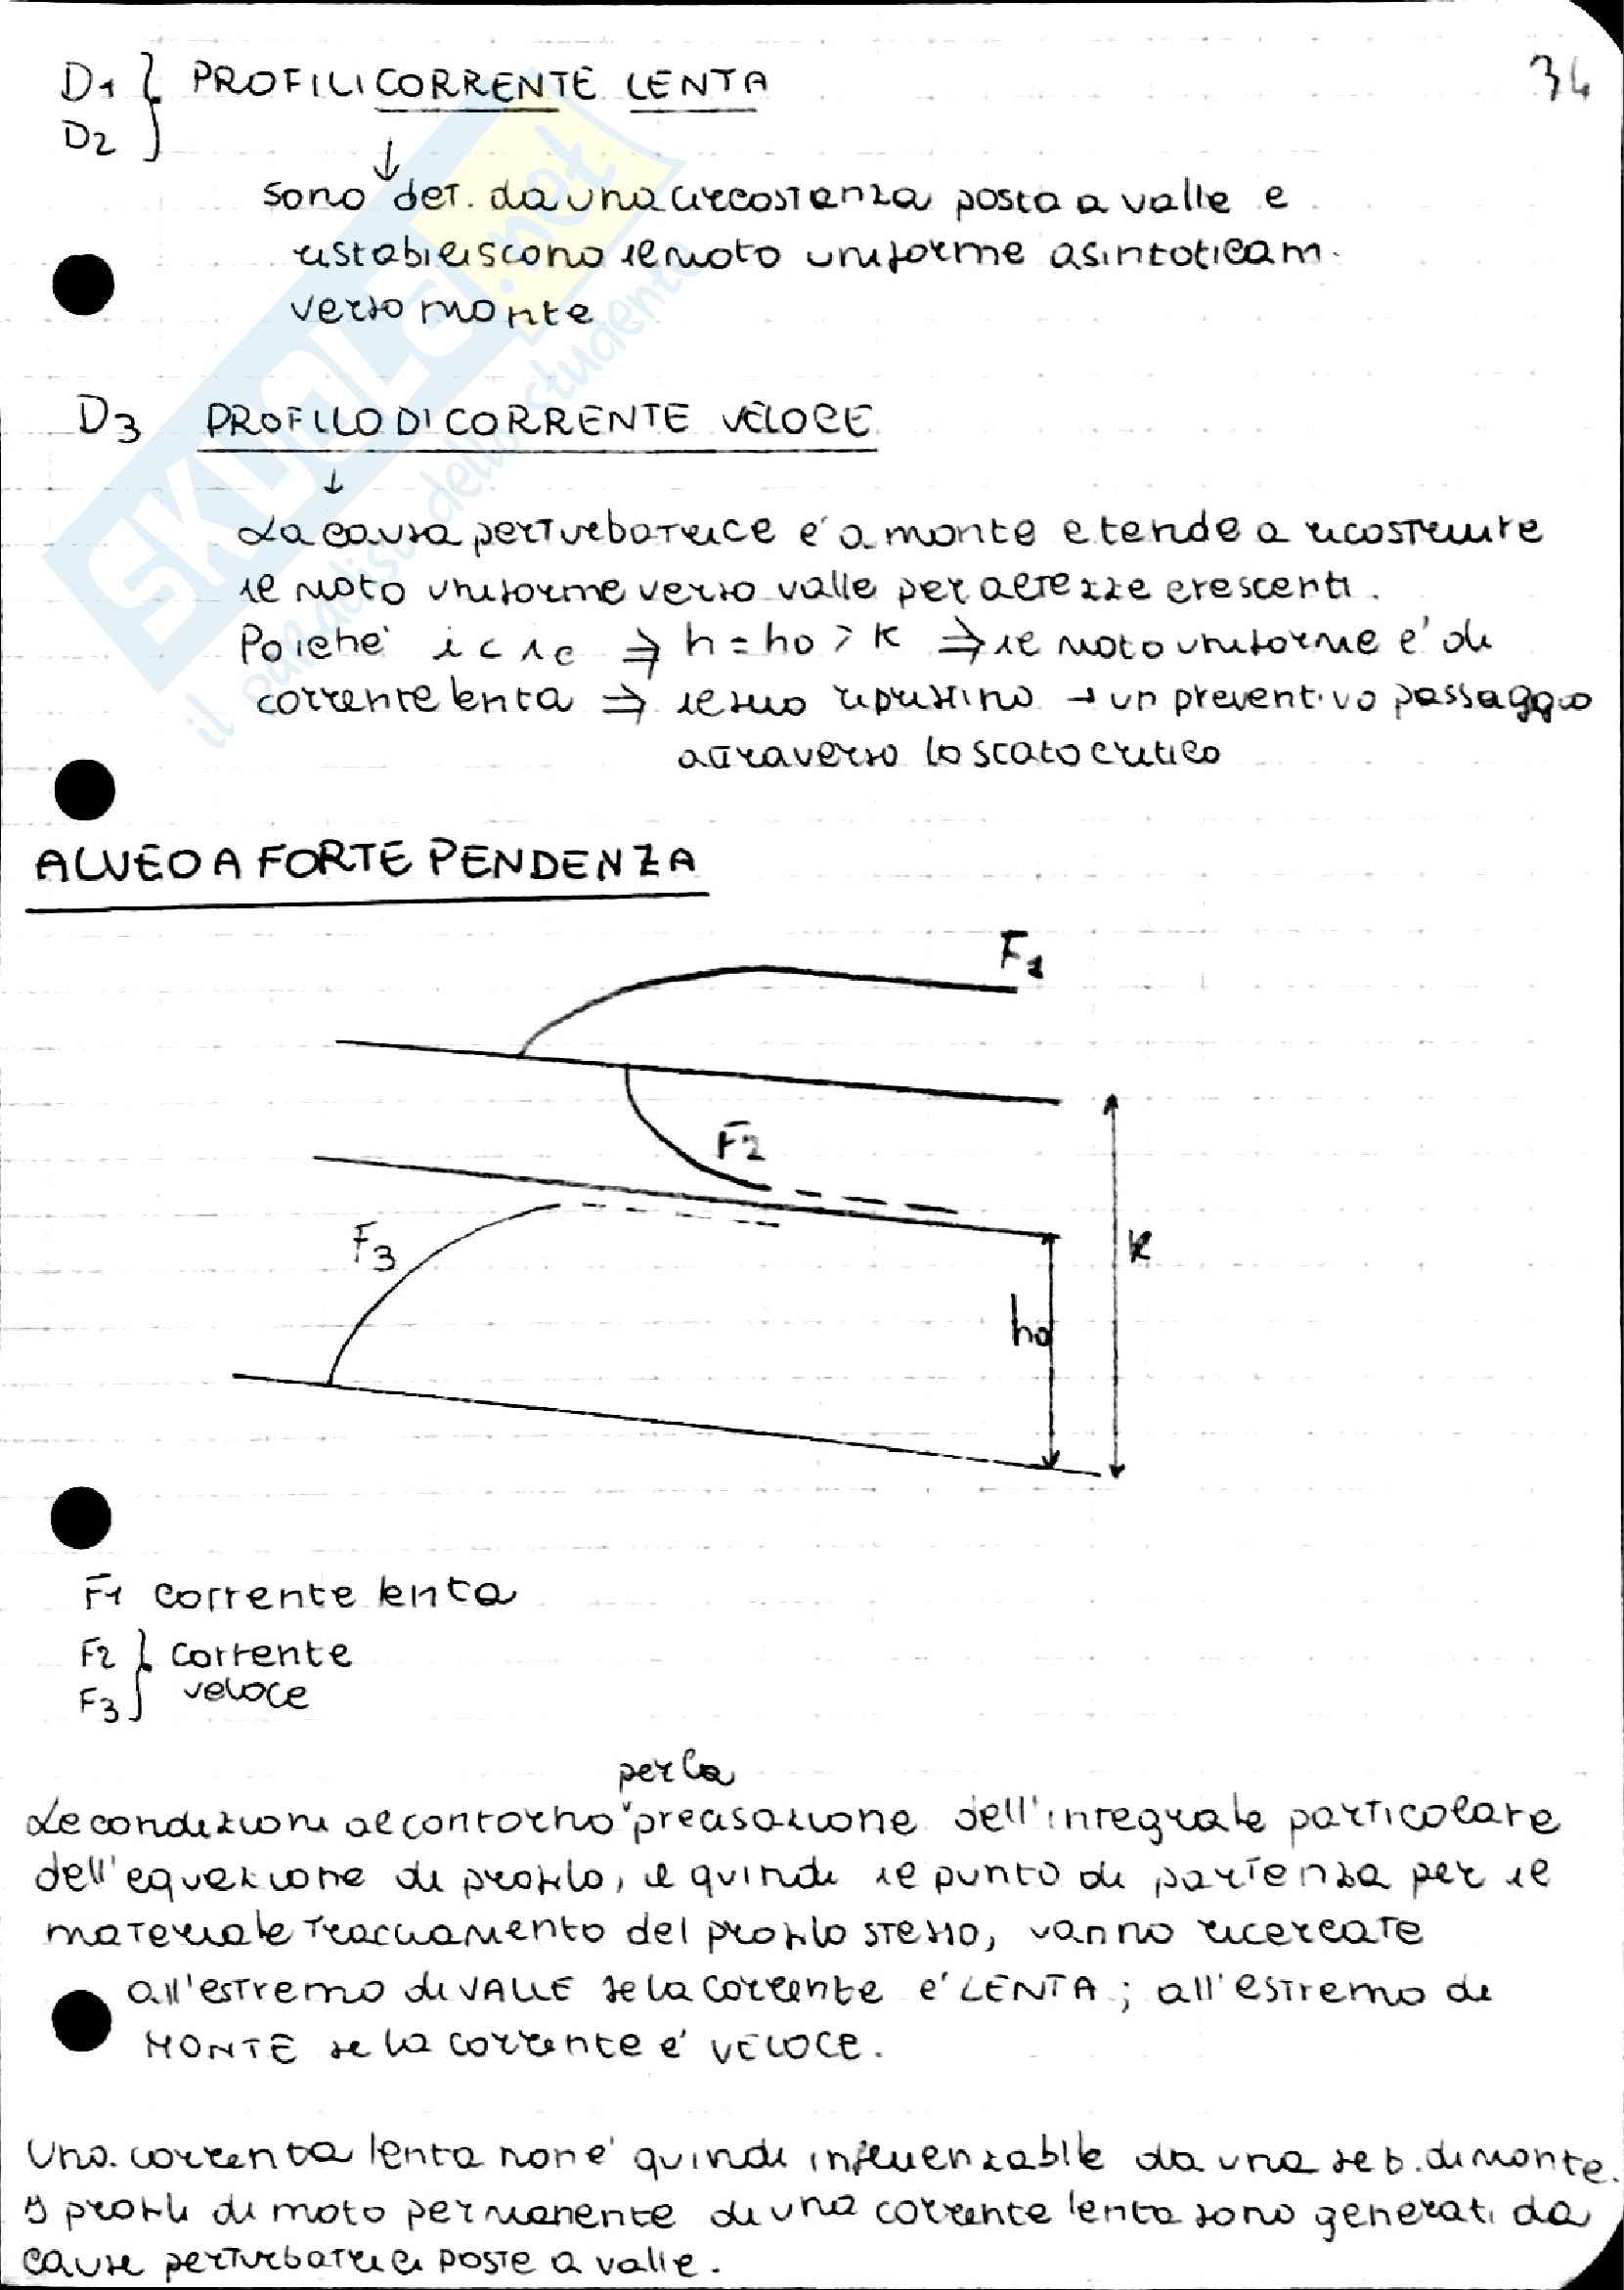 34
D1 } PROFILI CORRENTE LENTA
D2
↓
sono det. da una circostanza posta a valle e
ristabiliscono il moto uniforme asintoticam.
verso monte
D3 PROFILO DI CORRENTE VELOCE
↓
La causa perturbatrice è a monte e tende a ricostruire
il moto uniforme verso valle per altezze crescenti.
Poiché i < ic ⇒ h = ho > K ⇒ il moto uniforme è di
corrente lenta ⇒ il suo ripristino → un preventivo passaggio
attraverso lo stato critico
ALVEO A FORTE PENDENZA
F1
F2
F3
K
ho
F1 corrente lenta
F2 } corrente
F3 veloce
per la
Le condizioni al contorno precisazione dell'integrale particolare
dell'equazione di profilo, e quindi il punto di partenza per il
materiale tracciamento del profilo stesso, vanno ricercate
all'estremo di VALLE se la corrente è LENTA; all'estremo di
MONTE se la corrente è VELOCE.
Una corrente lenta non è quindi influenzabile da una sez. di monte.
I profili di moto permanente di una corrente lenta sono generati da
cause perturbatrici poste a valle.
SKUOLA.net
il paradiso dello studente